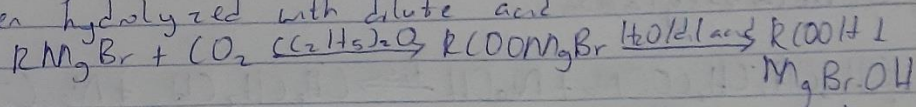 en hydrolyzed with dilute acid
RMgBr + CO2 (C2H5)2O RCOOMgBr H2O/dil acid RCOOH +
MgBr.OH